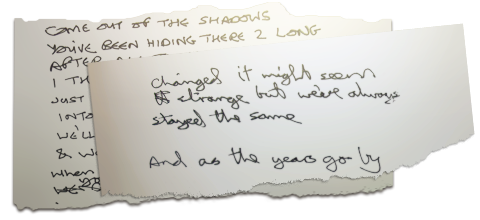 COME OUT OF THE SHADOWS
YOU'VE BEEN HIDING THERE 2 LONG
AFTER ALL
I TH
JUST
INTO
WE'LL
& W
when
changed it might seem
strange but we're always
stayed the same
And as the years go by